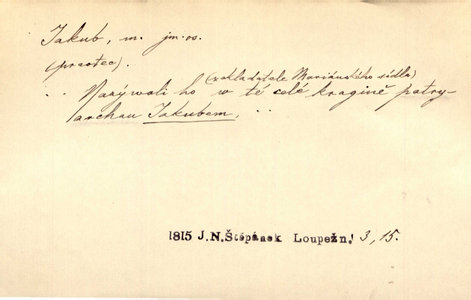 Jakub, m. jm. os.
(praotec).
.. Nazývali ho (zakladatele Mariánského sídla) w té celé kragině patry-
archau Jakubem, ..
1815 J.N.Štěpánek Loupežn. 3, 15.